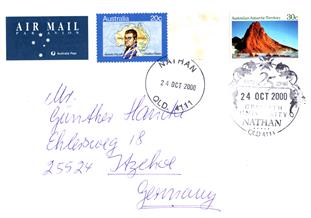 AIR MAIL
PAR AVION
Australia Post
Australia
20c
Australian Antarctic Territory
30c
NATHAN
24 OCT 2000
QLD. 4111
24 OCT 2000
UNIVERSITY
NATHAN
QLD 4111
Mr.
Günther Hancke
Ehlersweg 18
25524 Itzehoe
Germany